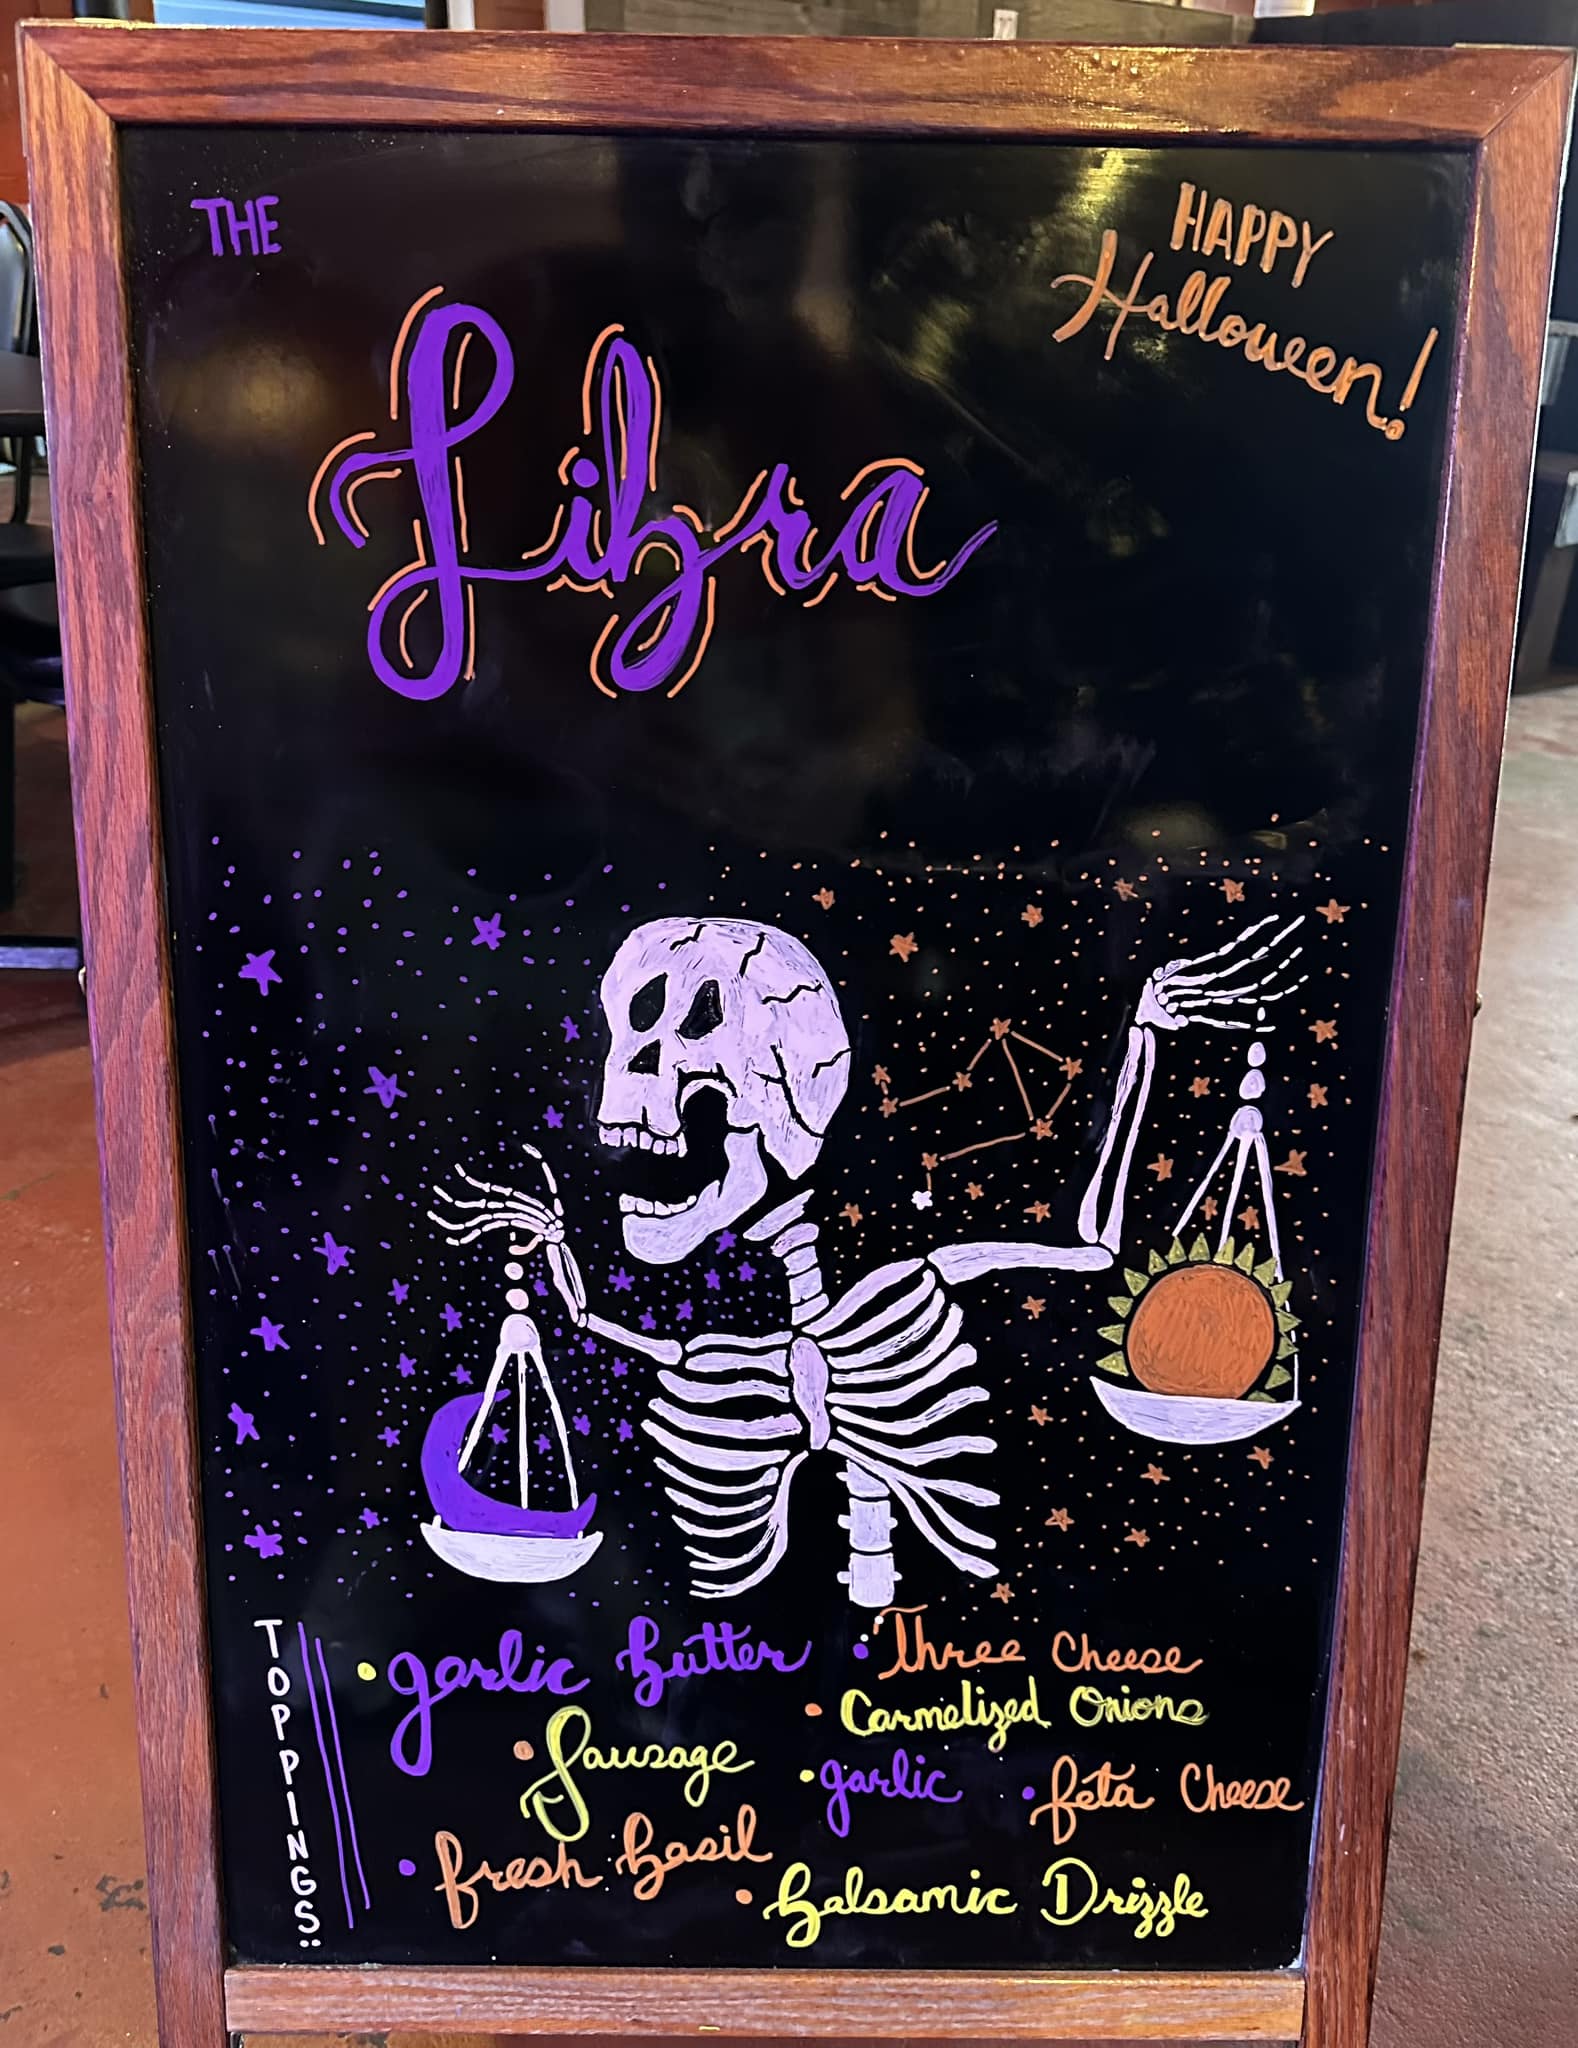 THE
HAPPY
Halloween!
Libra
TOPPINGS:
• garlic butter
• Three Cheese
• Carmelized Onions
• Sausage
• garlic
• feta Cheese
• fresh basil
• balsamic Drizzle